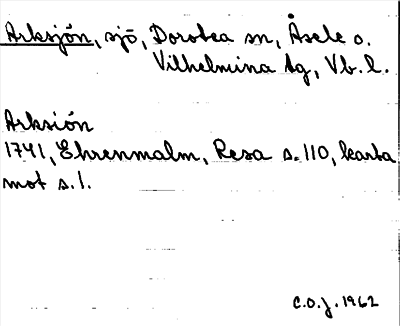 Arksjön, sjö, Dorotea sn, Åsele o.
Vilhelmina tg, Vb. l.
Arksiön
1741, Ehrenmalm, Resa s. 110, karta
mot s. 1.
C.O.J. 1962